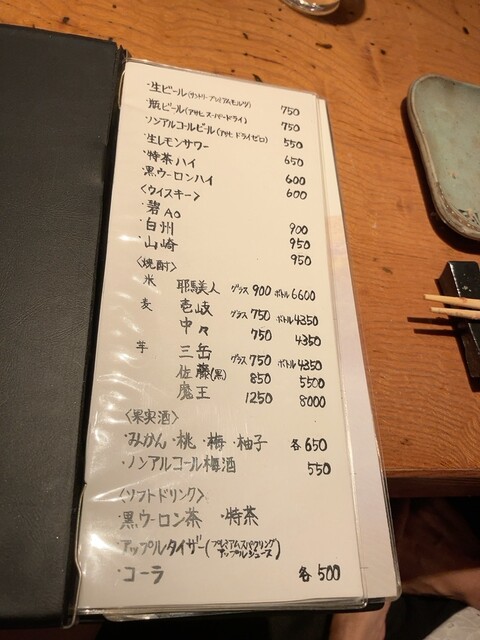 ・生ビール(サントリー プレミアムモルツ) 750
・瓶ビール(アサヒ スーパードライ) 750
・ノンアルコールビール(アサヒ ドライゼロ) 550
・生レモンサワー 650
・特茶ハイ 600
・黒ウーロンハイ 600
〈ウイスキー〉
・碧Ao 900
・白州 950
・山崎 950
〈焼酎〉
米 耶馬美人 グラス 900 ボトル 6600
麦 壱岐 グラス 750 ボトル 4350
中々 750 4350
芋 三岳 グラス 750 ボトル 4350
佐藤(黒) 850 5500
魔王 1250 8000
〈果実酒〉
・みかん・桃・梅・柚子 各650
・ノンアルコール梅酒 550
〈ソフトドリンク〉
・黒ウーロン茶 ・特茶
・アップルタイザー(プレミアムスパークリングアップルジュース)
・コーラ 各500